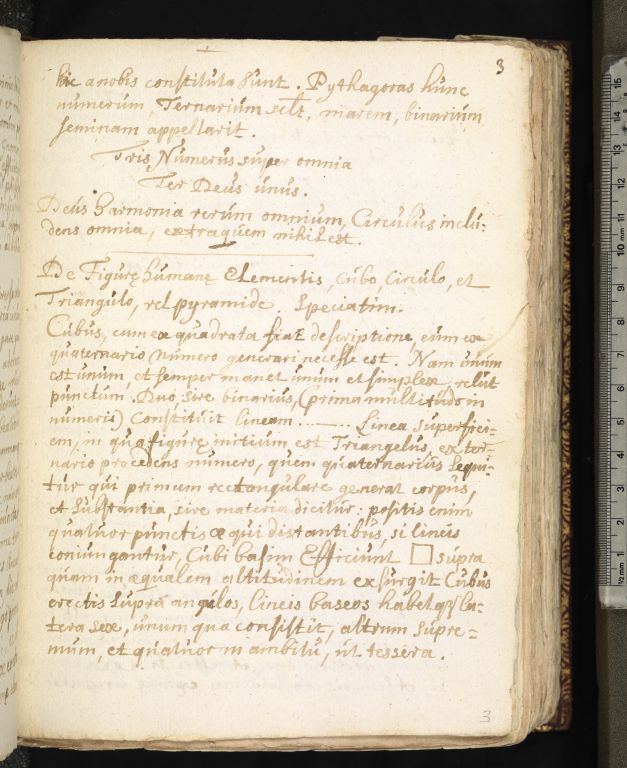 3
hic a nobis constituta sunt. Pythagoras hunc
numerum, Ternarium sclt, marem, binarium
feminam appellarit.
Tris Numerus super omnia
Ter Deus unus.
Deus harmonia rerum omnium, Circulus inclu-
dens omnia, extra quem nihil est.
De Figurę humanę Elementis, Cubo, Circulo, et
Triangulo, vel pyramide. Speciatim.
Cubus, cum ex quadrata fiat descriptione, eum ex
quaternario numero generari necesse est. Nam unum
est unum, et semper manet unum et simplex, velut
punctum. Duo, sive binarius, (prima multitudo in
numeris) constituit lineam .——. Linea superfici-
em, in qua figurę initium est Triangelus, ex ter-
nario procedens numero, quem quaternarius sequi-
tur qui primum rectangulare generat corpus,
et substantia, sive materia dicitur: positis enim
quatuor punctis æquidistantibus, si lineis
coniungantur, Cubi basim Efficiunt □ supra
quam in æqualem altitudinem exsurgit Cubus
erectis supra angulos, lineis baseos habetq̃ la-
tera sex, unum qua consistit, altrum supre-
mum, et quatuor in ambitu, ut tessera.
3